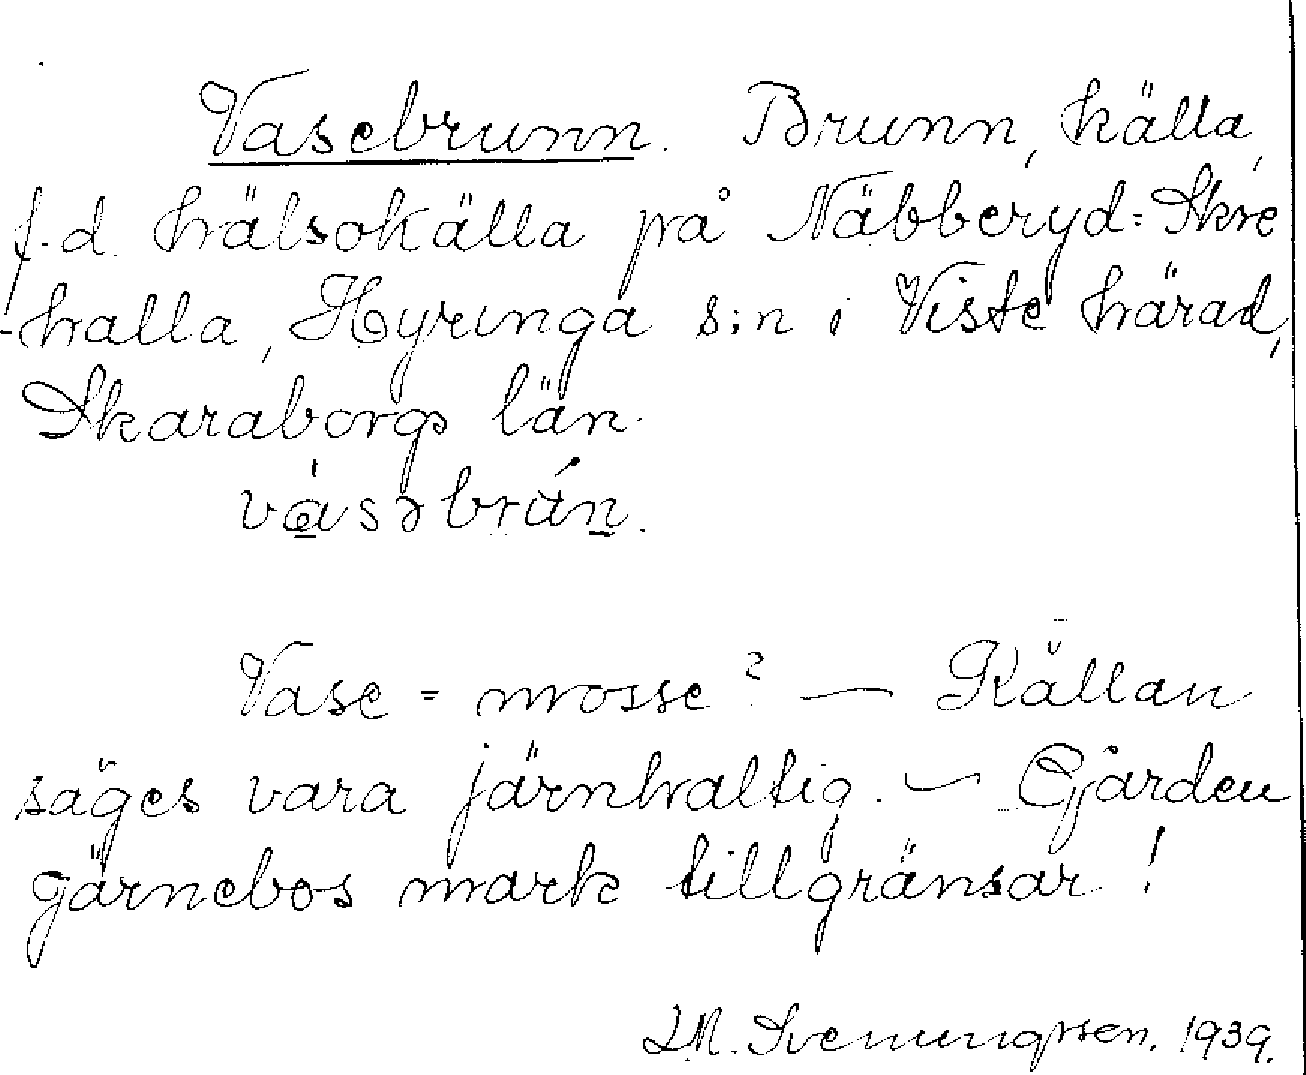 Vasebrunn. Brunn, källa,
f.d. hälsokälla på Näbberyd=Skre
-halla, Hyringa s:n i Viste härad,
Skaraborgs län.
vásəbrún.
Vase = mosse? — Källan
säges vara järnhaltig. — Gården
gärnebos mark tillgränsar!
Svenungsson. 1939.